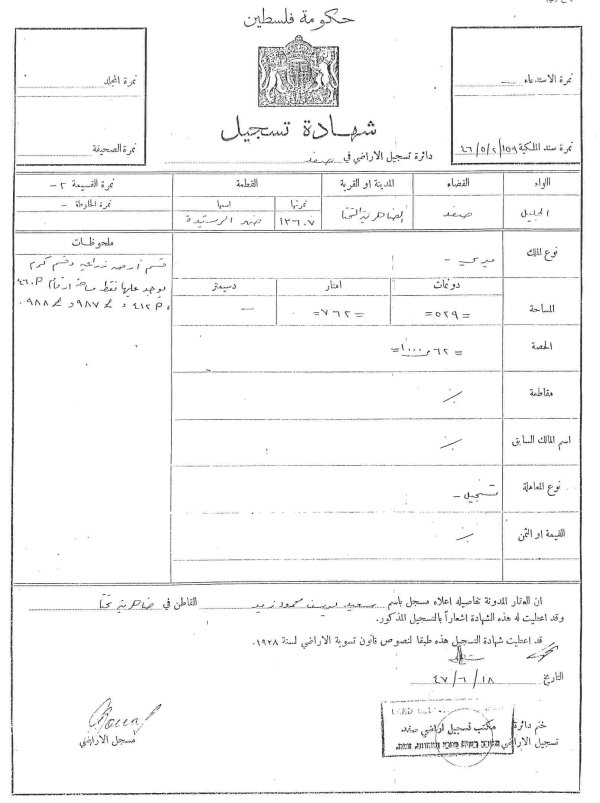 حكومة فلسطين
نمرة الاستدعاء —
نمرة سند الملكية ٤٦/٥/٢/١٥٩
نمرة المجلد
نمرة الصحيفة
شهادة تسجيل
دائرة تسجيل الاراضي في صفد
اللواء القضاء المدينة او القرية القطعة نمرة القسيمة ٢-
نمرتها اسمها نمرة الخارطة -
الجليل صفد الضاهرية التحتا ١٣٦٠٧ ضهر الرستيدة
نوع الملك ميري -
دونمات امتار دسيمتر
المساحة =٥٢٩= =٧٦٢= —
الحصة
مقاطعة
اسم المالك السابق
نوع المعاملة تسجيل -
القيمة او الثمن
ملحوظات
قسم أرض زراعية وقسم كرم
يوجد عليها نقط مساحة ارقام
ان العقار المدونة تفاصيله اعلاه مسجل باسم سعيد يوسف محمود زيد القاطن في ضاهرية تحتا
وقد اعطيت له هذه الشهادة اشعاراً بالتسجيل المذكور.
قد اعطيت شهادة التسجيل هذه طبقا لنصوص قانون تسوية الاراضي لسنة ١٩٢٨.
التاريخ ٤٧/٦/١٨
ختم دائرة
تسجيل الاراضي
مكتب تسجيل اراضي صفد
مسجل الأراضي